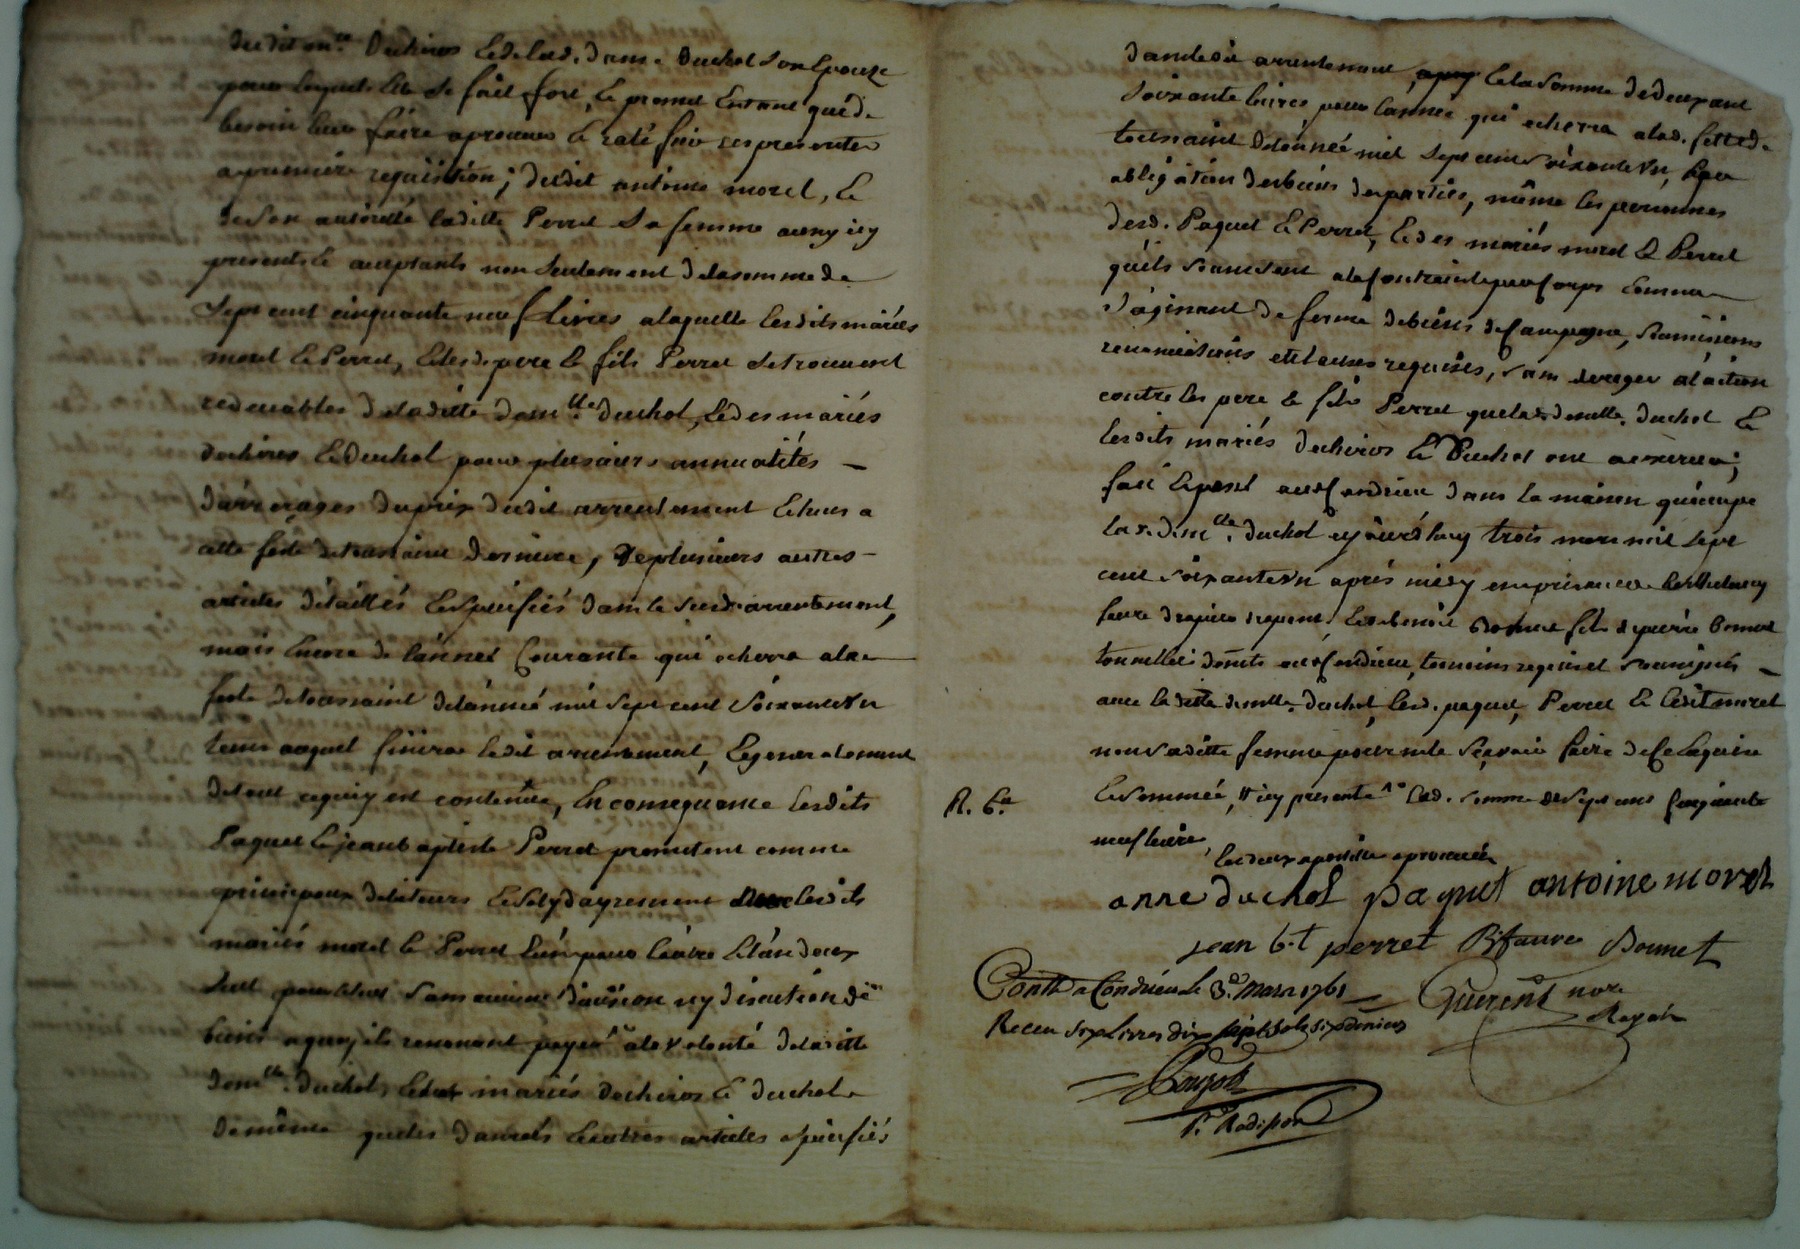 dudit mre Duchiros & de lad. dame Duchol son Epouze
pour lesquels Elle se fait fort, & promet Entant que de
besoin leur faire aprouver & ratifier ces presentes
a premiere requisition; dudit antoine morel, &
de son autorité laditte Perret Sa femme aussy icy
presents & acceptants non seulement de la somme de
Sept cent cinquante neuf Livres a laquelle lesdits mariés
morel & Perret, & lesd. pere & fils Perret se trouvent
redevables de laditte dam.lle duchol, & des mariés
duchiros & duchol pour plusieurs annuatités –
d'arrerages du prix dudit arrentement Echeus a
cette feste de toussaint derniere, & plusieurs autres –
articles détaillés & spécifiés dans le susd. arrentement,
mais Encore de l'année Courante qui echerra a la
feste de toussaint de l'année mil sept cent Soixante Vn
tems auquel finira ledit arrentement, & generalement
de tout ce qui y est contenu, En consequance lesdits
Paquet & jean baptiste Perret promettent comme
principaux debiteurs & solydayrement avec lesdits
mariés morel & Perret l'un pour l'autre & l'un d'eux
seul pour le tout sans aucune division ny discution de
biens a quoy ils renoncent payer a la volonté de laditte
dem.lle duchol, & des mariés duchiros & duchol
de même que les danrées & autres articles spécifiés
dans ledit arrentement, & la somme de deux cent
soixante livres pour l'année qui echerra a lad. fette de
toussaint de l'année mil sept cent soixante Vn, & par
obligation des biens des parties, même les personnes
desd. Paquet & Perret, & des mariés morel & Perret
qu'ils soumettent a la Contrainte par Corps comme
s'agissant de ferme de biens de Campagne, soumissions
renonciations et clauses requises, sans deroger a l'action
contre les pere & fils Perret que lad. demlle. duchol &
lesdits mariés duchiros & Duchol ont a exercer;
fait & passé audit Condrieu dans la maison qu'occupe
lad. demlle. duchol ce jourd'huy trois mars mil sept
cent soixante Vn aprés midy en presence de Barthelemy
faure drapier drapant, & de benoit Bonnet fils de pierre bonnet
tonnellier dudit Condrieu, temoins requis et soussignés –
avec la ditte demlle. duchol, lesd. paquet, Perret & ledit morel
non laditte femme pour ne le sçavoir faire de Ce Enquise
& sommée, icy présente lad. somme de sept cent Cinquante
R. 6.e
neuf livres,
les deux apostilles aprouvées
anne duchol paquet antoine morel
jean b.t perret B faure Bonnet
Contllé a Condrieu le 3.e Mars 1761
Guerent nore
Royal
Receu six Livres dix sept sols six deniers